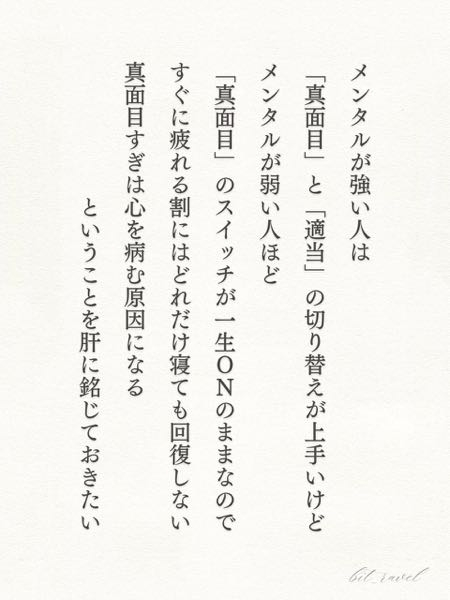 メンタルが強い人は
「真面目」と「適当」の切り替えが上手いけど
メンタルが弱い人ほど
「真面目」のスイッチが一生ONのままなので
すぐに疲れる割にはどれだけ寝ても回復しない
真面目すぎは心を病む原因になる
ということを肝に銘じておきたい
bit_ravel